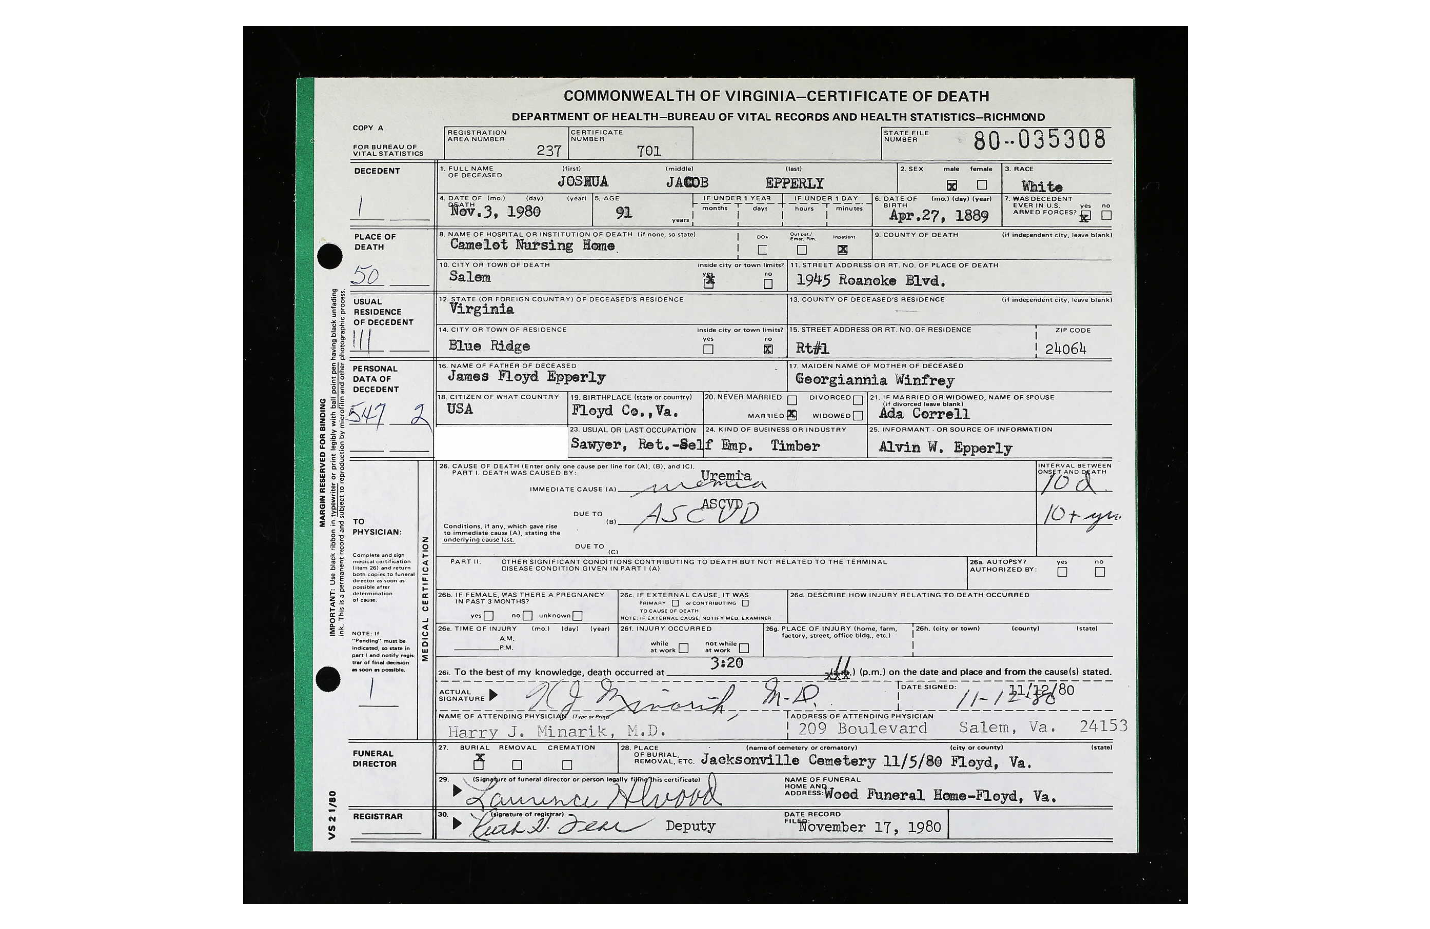 COMMONWEALTH OF VIRGINIA—CERTIFICATE OF DEATH
DEPARTMENT OF HEALTH—BUREAU OF VITAL RECORDS AND HEALTH STATISTICS—RICHMOND
COPY A
FOR BUREAU OF VITAL STATISTICS
REGISTRATION AREA NUMBER 237
CERTIFICATE NUMBER 701
STATE FILE NUMBER 80--035308
DECEDENT
1
1. FULL NAME OF DECEASED (first) (middle) (last)
JOSHUA JACOB EPPERLY
2. SEX male female
3. RACE White
4. DATE OF DEATH (mo.) (day) (year) Nov.3, 1980
5. AGE 91 years
IF UNDER 1 YEAR months days
IF UNDER 1 DAY hours minutes
6. DATE OF BIRTH (mo.) (day) (year) Apr.27, 1889
7. WAS DECEDENT EVER IN U.S. ARMED FORCES? yes no
PLACE OF DEATH
50
8. NAME OF HOSPITAL OR INSTITUTION OF DEATH (if none, so state)
Camelot Nursing Home
DOA Inpatient
9. COUNTY OF DEATH (if independent city, leave blank)
10. CITY OR TOWN OF DEATH inside city or town limits? yes no
Salem
11. STREET ADDRESS OR RT. NO. OF PLACE OF DEATH
1945 Roanoke Blvd.
USUAL RESIDENCE OF DECEDENT
111
12. STATE (OR FOREIGN COUNTRY) OF DECEASED'S RESIDENCE
Virginia
13. COUNTY OF DECEASED'S RESIDENCE (if independent city, leave blank)
14. CITY OR TOWN OF RESIDENCE inside city or town limits? yes no
Blue Ridge
15. STREET ADDRESS OR RT. NO. OF RESIDENCE
Rt#1
ZIP CODE
24064
PERSONAL DATA OF DECEDENT
547 2
16. NAME OF FATHER OF DECEASED
James Floyd Epperly
17. MAIDEN NAME OF MOTHER OF DECEASED
Georgiannia Winfrey
18. CITIZEN OF WHAT COUNTRY
USA
19. BIRTHPLACE (state or country)
Floyd Co.,Va.
20. NEVER MARRIED DIVORCED
MARRIED WIDOWED
21. IF MARRIED OR WIDOWED, NAME OF SPOUSE (if divorced leave blank)
Ada Correll
23. USUAL OR LAST OCCUPATION
24. KIND OF BUSINESS OR INDUSTRY
Sawyer, Ret.-Self Emp. Timber
25. INFORMANT - OR SOURCE OF INFORMATION
Alvin W. Epperly
MARGIN RESERVED FOR BINDING
IMPORTANT: Use black ribbon in typewriter or print legibly with ball point pen having black unfading
ink. This is a permanent record and subject to reproduction by microfilm and other photographic process.
TO PHYSICIAN:
Complete and sign medical certification (item 26) and return both copies to funeral director as soon as possible after determination of cause.
NOTE: If "Pending" must be indicated, so state in part I and notify registrar of final decision as soon as possible.
1
MEDICAL CERTIFICATION
26. CAUSE OF DEATH (Enter only one cause per line for (A), (B), and (C).
PART I. DEATH WAS CAUSED BY:
INTERVAL BETWEEN ONSET AND DEATH
Uremia
IMMEDIATE CAUSE (A) Uremia 10 d.
ASCVD
DUE TO (B) ASCVD 10+ yrs
Conditions, if any, which gave rise to immediate cause (A), stating the underlying cause last.
DUE TO (C)
PART II. OTHER SIGNIFICANT CONDITIONS CONTRIBUTING TO DEATH BUT NOT RELATED TO THE TERMINAL DISEASE CONDITION GIVEN IN PART I (A)
26a. AUTOPSY? AUTHORIZED BY: yes no
26b. IF FEMALE, WAS THERE A PREGNANCY IN PAST 3 MONTHS?
yes no unknown
26c. IF EXTERNAL CAUSE, IT WAS
PRIMARY or CONTRIBUTING
TO CAUSE OF DEATH
NOTE: IF EXTERNAL CAUSE, NOTIFY MED. EXAMINER
26d. DESCRIBE HOW INJURY RELATING TO DEATH OCCURRED
26e. TIME OF INJURY (mo.) (day) (year)
A.M.
P.M.
26f. INJURY OCCURRED
while at work not while at work
26g. PLACE OF INJURY (home, farm, factory, street, office bldg., etc.)
26h. (city or town) (county) (state)
26i. To the best of my knowledge, death occurred at 3:20 (p.m.) on the date and place and from the cause(s) stated.
ACTUAL SIGNATURE H J Minarik, M.D.
DATE SIGNED: 11/12/80
NAME OF ATTENDING PHYSICIAN (Type or Print)
Harry J. Minarik, M.D.
ADDRESS OF ATTENDING PHYSICIAN
209 Boulevard Salem, Va. 24153
FUNERAL DIRECTOR
27. BURIAL REMOVAL CREMATION
28. PLACE OF BURIAL, REMOVAL, ETC. (name of cemetery or crematory) (city or county) (state)
Jacksonville Cemetery 11/5/80 Floyd, Va.
29. (Signature of funeral director or person legally filing this certificate)
NAME OF FUNERAL HOME AND ADDRESS: Wood Funeral Home-Floyd, Va.
REGISTRAR
30. (signature of registrar)
Deputy
DATE RECORD FILED: November 17, 1980
VS 2 1/80